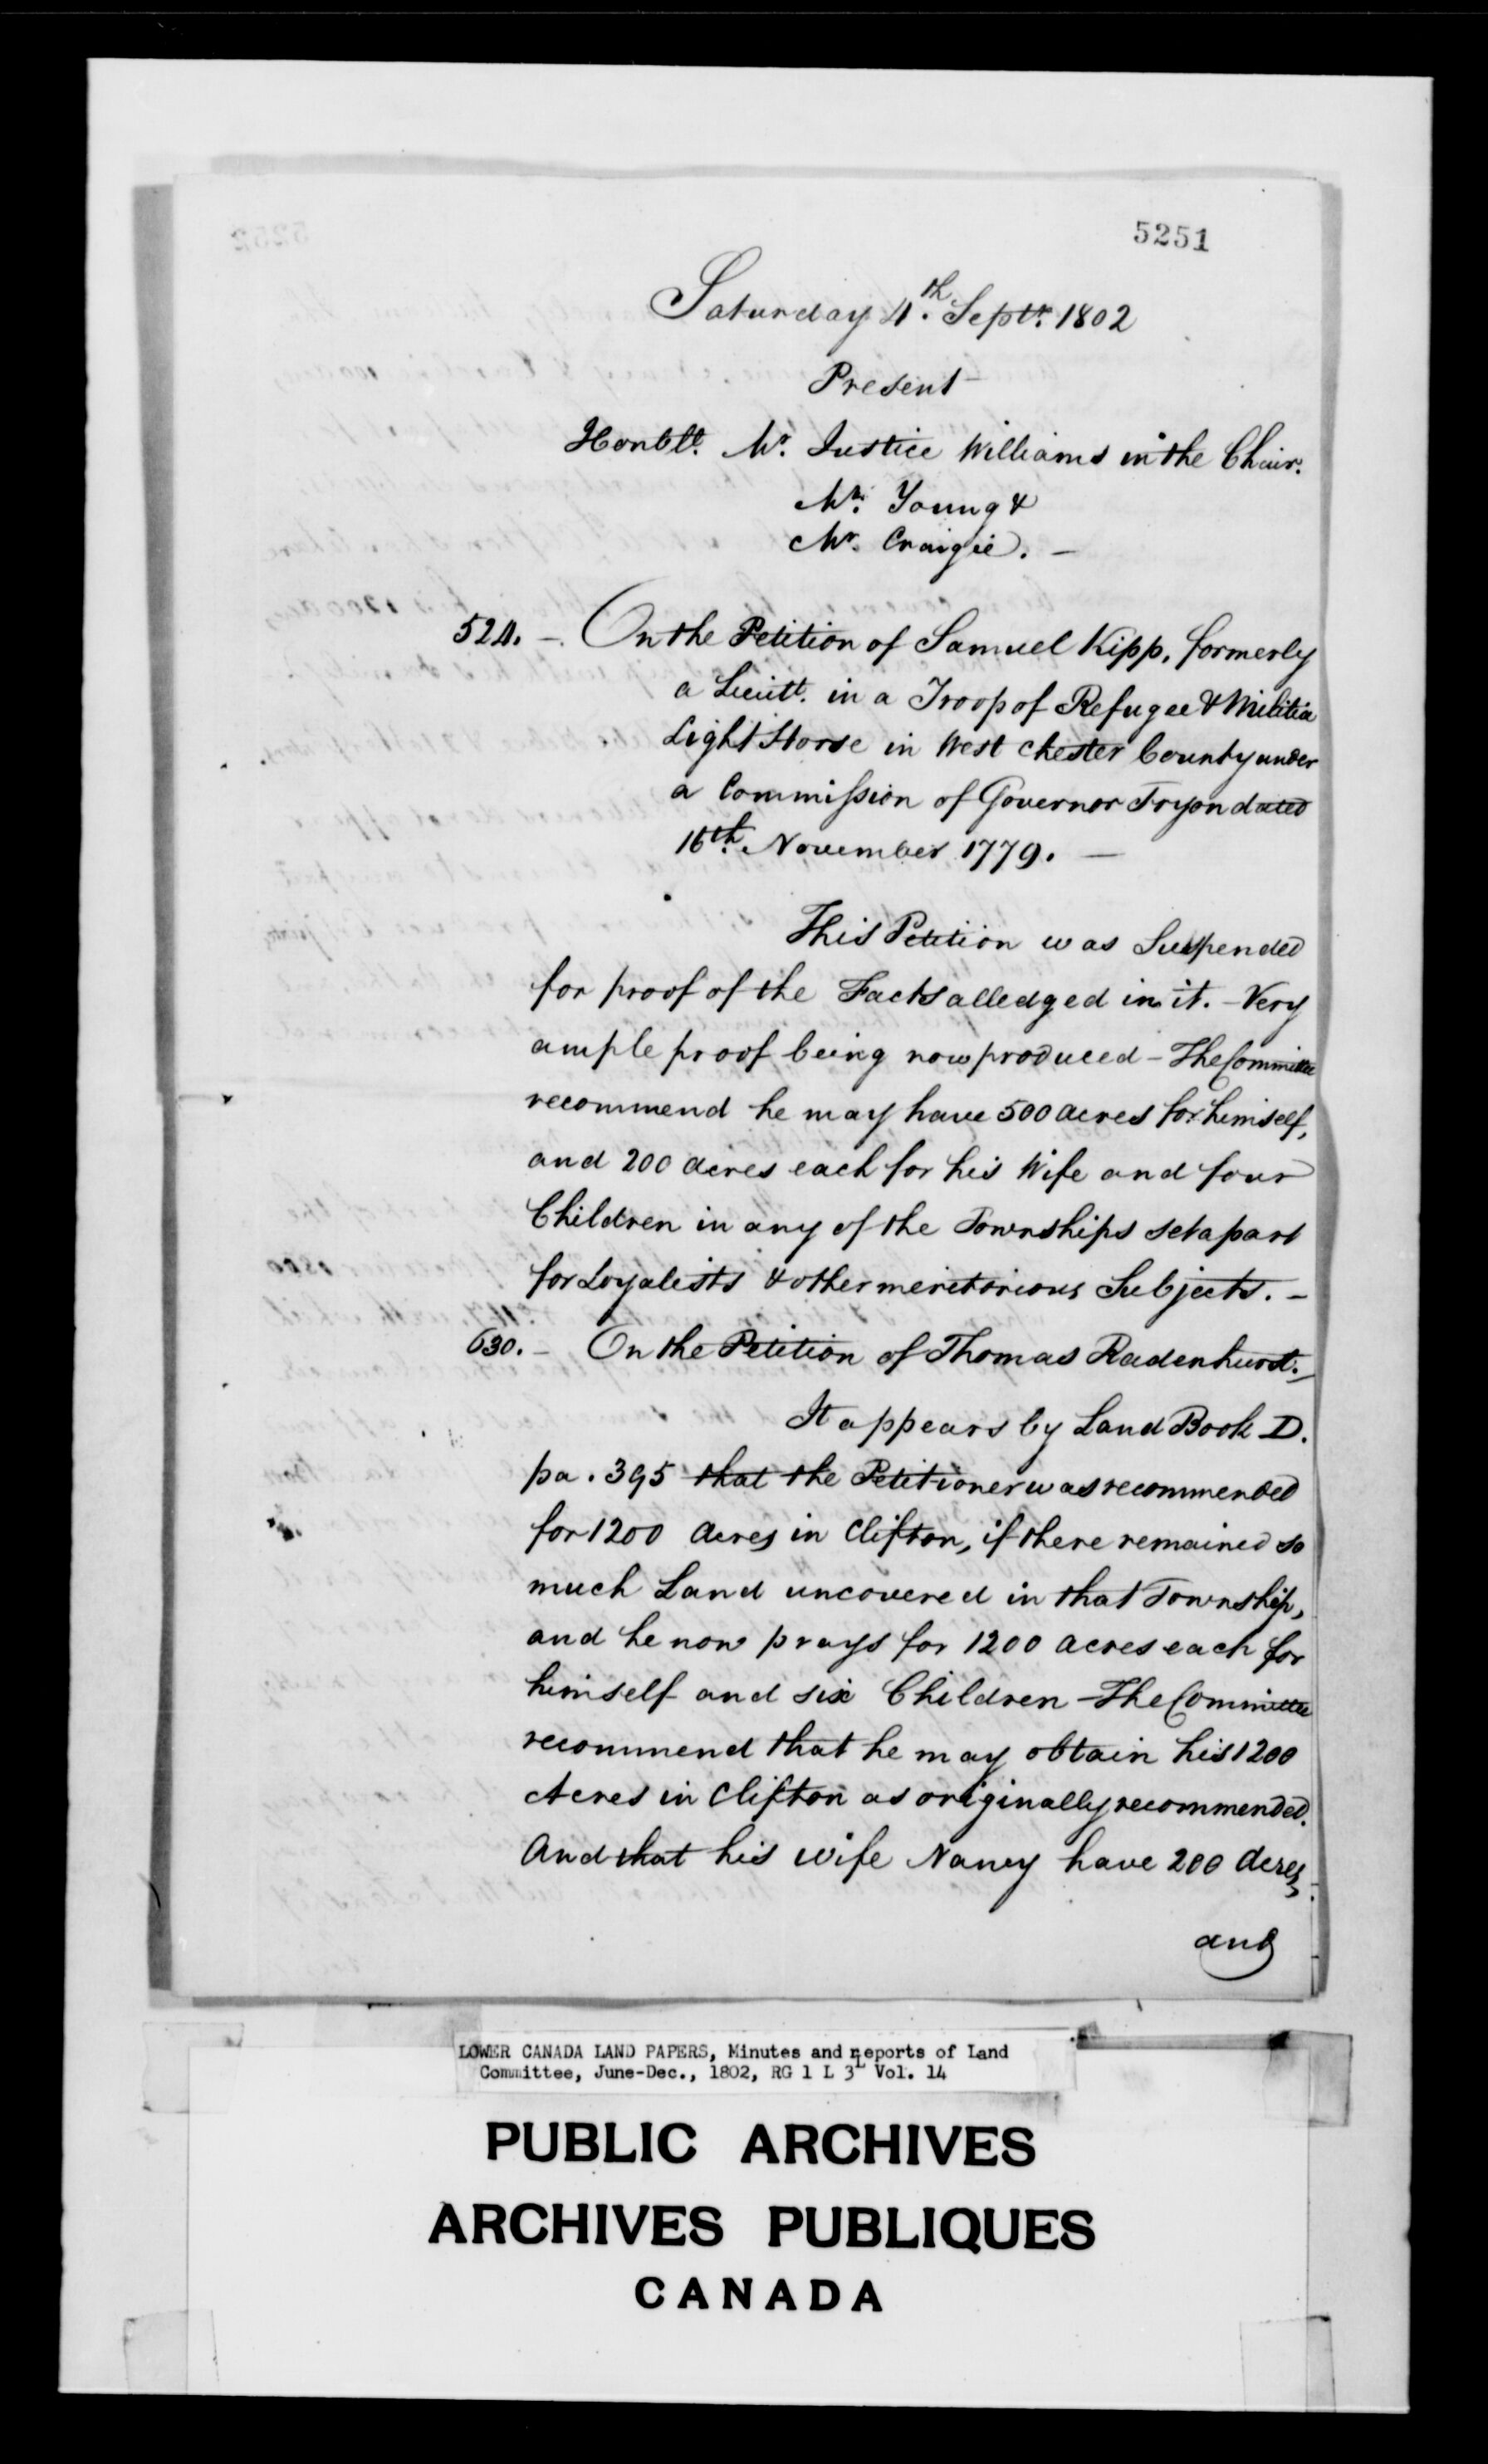 5251
Saturday 4th. Septr. 1802
Present
Honble. Mr. Justice Williams in the Chair.
Mr. Young &
Mr. Craigie. —
524. — On the Petition of Samuel Kipp, formerly
a Lieutt. in a Troop of Refugee & Militia
Light Horse in West Chester County under
a Commission of Governor Tryon dated
16th. November 1779. —
This Petition was Suspended
for proof of the Facts alledged in it. — Very
ample proof being now produced — The Committee
recommend he may have 500 acres for himself,
and 200 acres each for his Wife and four
Children in any of the Townships set apart
for Loyalists & other meritorious Subjects. —
630. — On the Petition of Thomas Radenhurst. —
It appears by Land Book D.
pa. 395 that the Petitioner was recommended
for 1200 Acres in Clifton, if there remained so
much Land uncovered in that Township,
and he now prays for 1200 acres each for
himself and six Children — The Committee
recommend that he may obtain his 1200
Acres in Clifton as originally recommended.
And that his wife Nancy have 200 Acres,
and
LOWER CANADA LAND PAPERS, Minutes and Reports of Land
Committee, June-Dec., 1802, RG 1 L 3L Vol. 14
PUBLIC ARCHIVES
ARCHIVES PUBLIQUES
CANADA